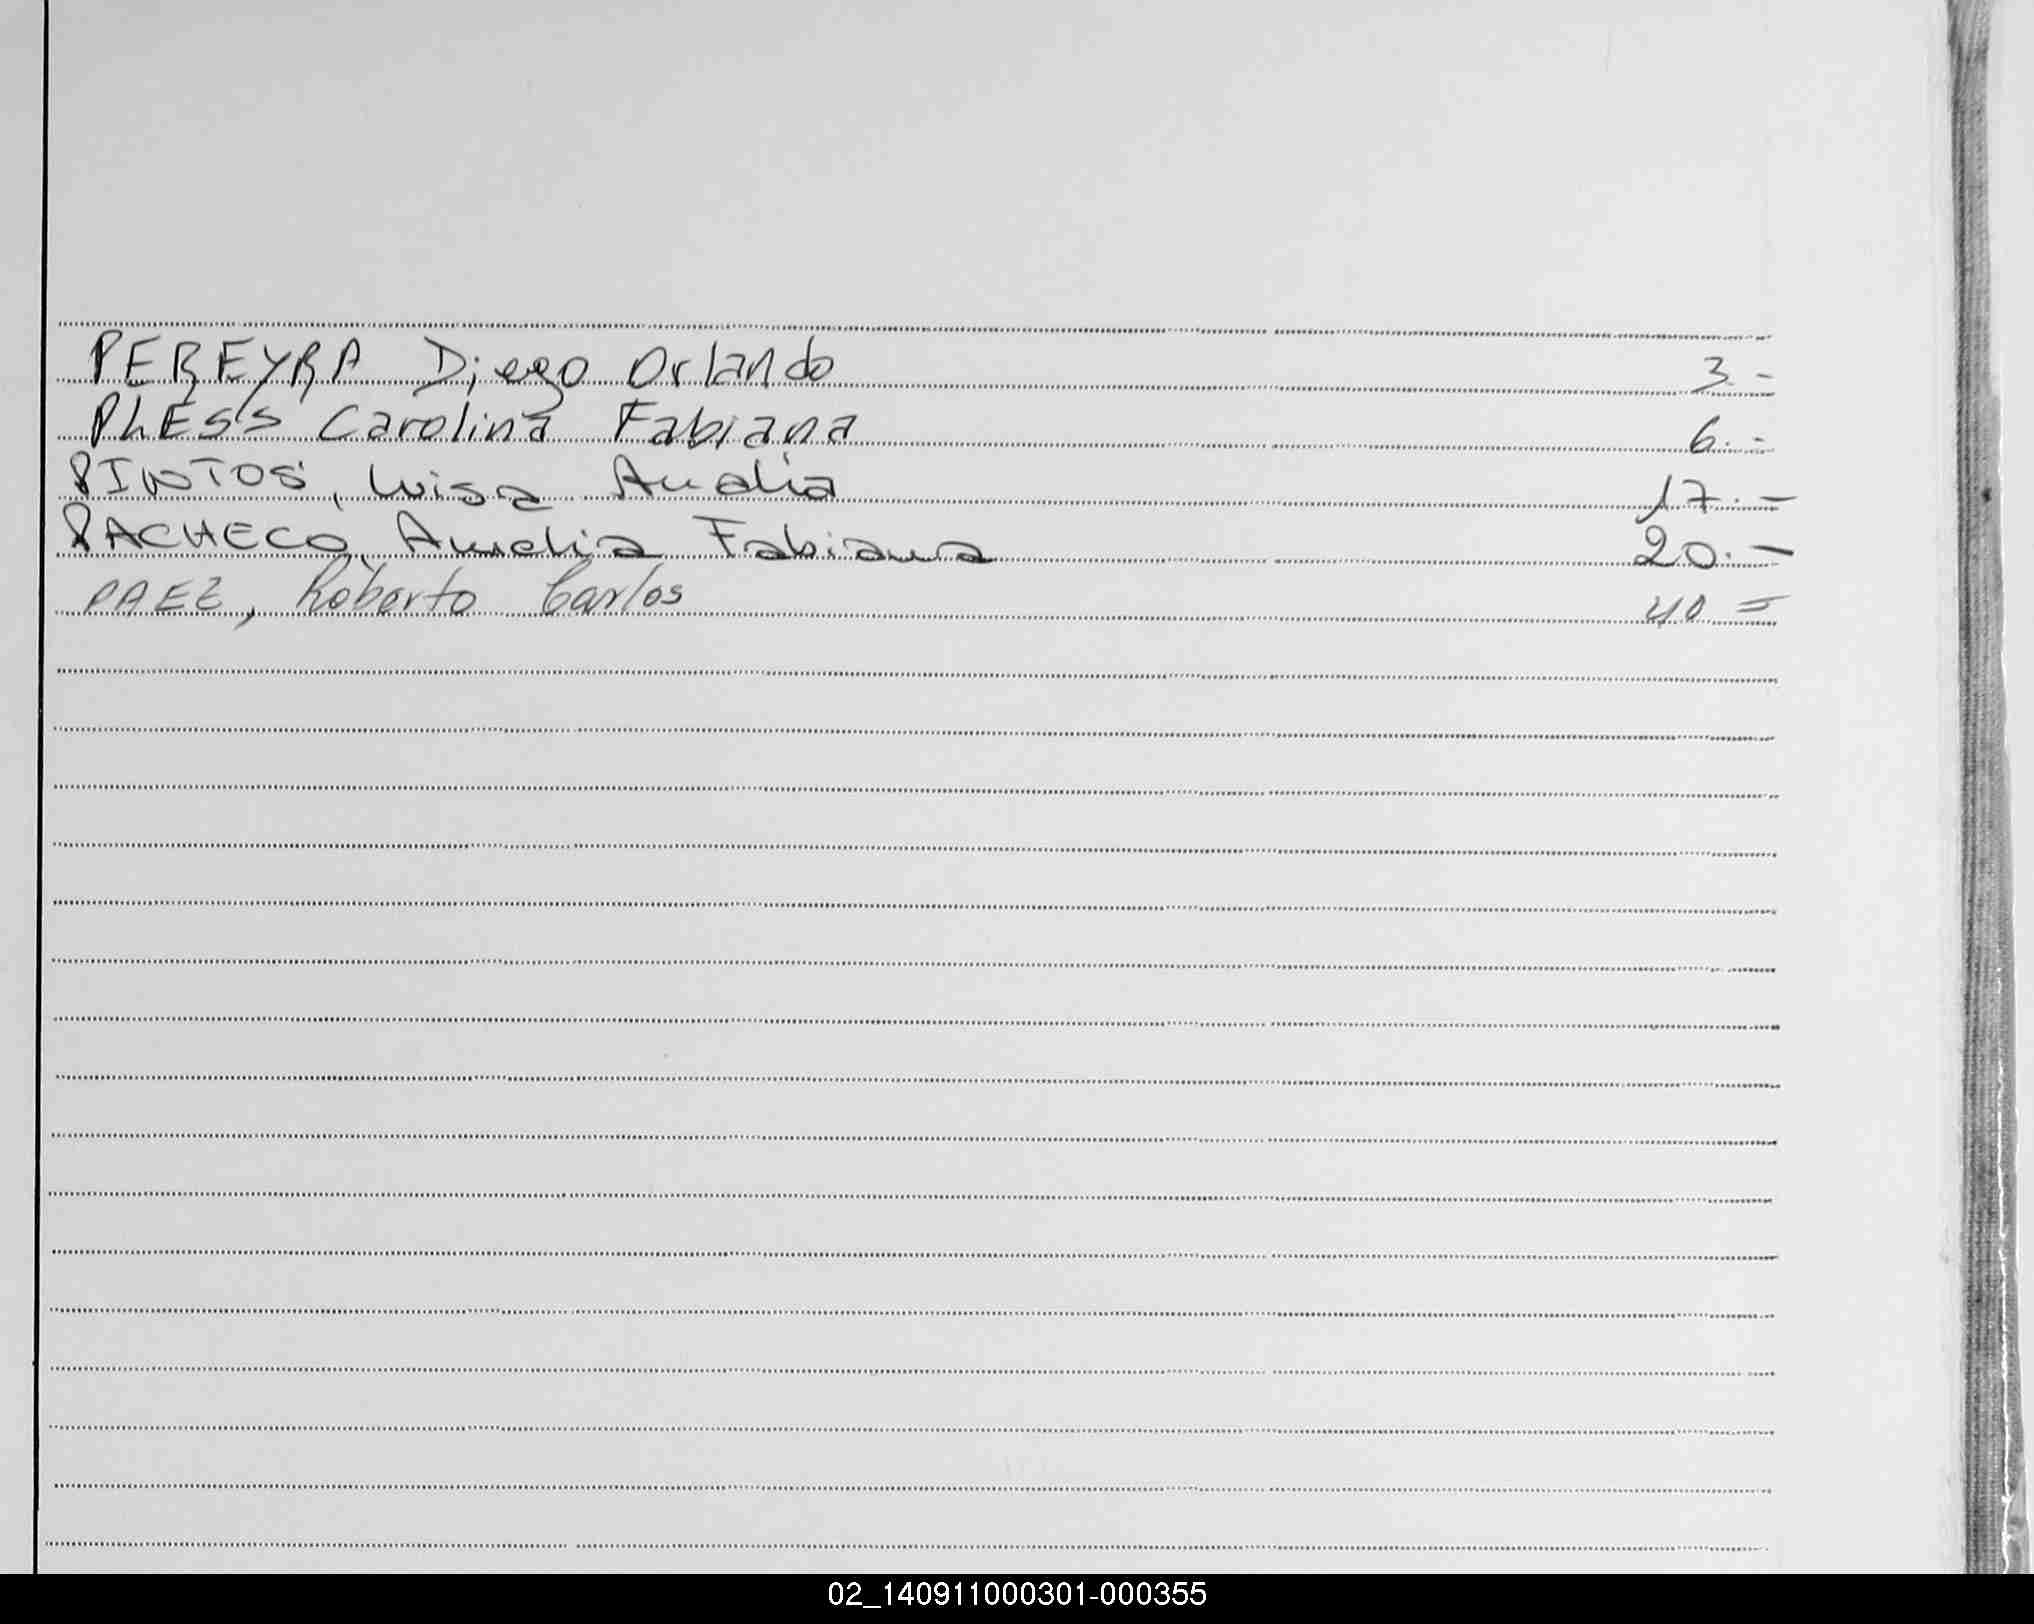 PEREYRA Diego Orlando 3.-
PLESS Carolina Fabiana 6.-
PINTOS, Luisa Analia 17.-
PACHECO, Amelia Fabiana 20.-
PAEZ, Roberto Carlos 40 =
02_140911000301-000355